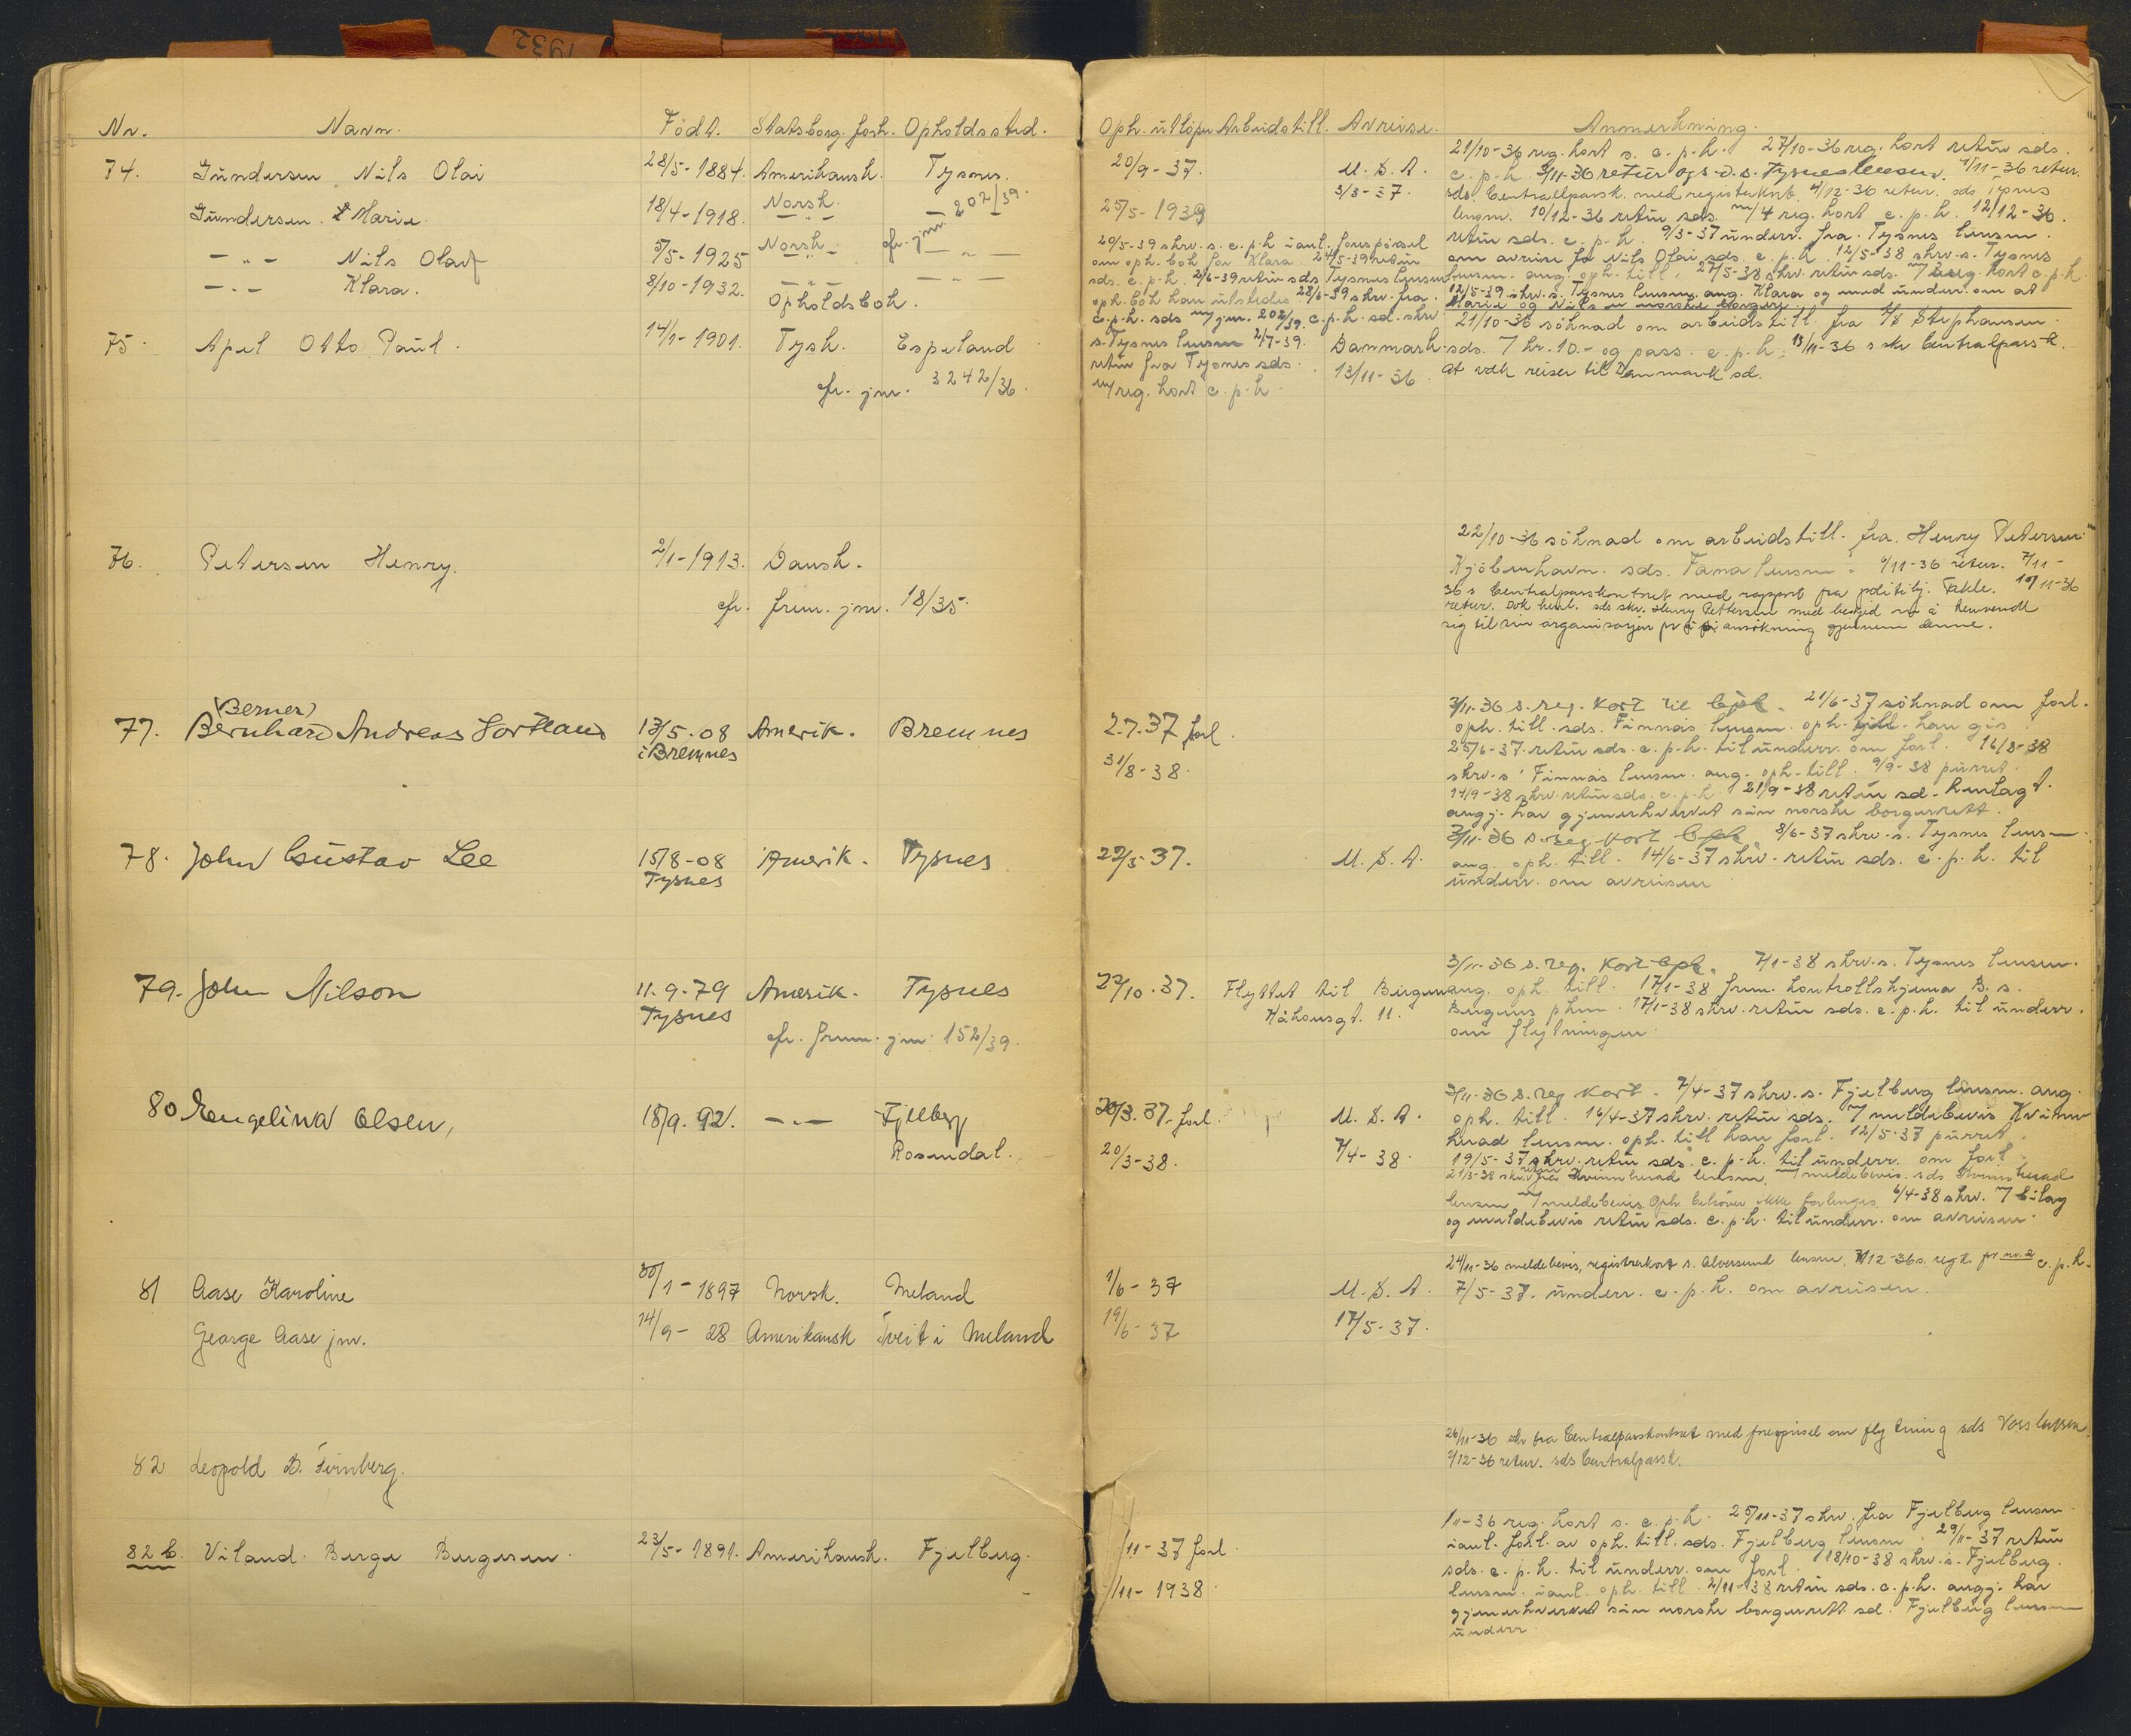 1932
Nr. Navn. Född. Statsborg. forh. Opholdssted. Oph. utlöper Arbeidstill. Avreise. Anmerkning.
74. Gundersen Nils Olai 28/5-1884. Amerikansk. Tysnes. 20/9-37. U.S.A. 3/3-37.
Gundersen Marie 18/4-1918. Norsk. 202/39. 25/5-1939
-"- Nils Olaf 5/5-1925 Norsk cfr. jnr. -"-
-"- Klara. 8/10-1932. -"-
Opholdsbok.
21/10-36 reg. kort s. c.p.k. 27/10-36 reg. kort retur sds.
sds. Centralpassk. med registerkort. 4/12-36 retur. sds Tysnes
lensm. 10/12-36 retur sds. m/4 reg. kort c.p.k. 12/12-36.
retur sds. c.p.k. 9/3-37 underr. fra Tysnes lensm.
om avreise for Nils Olai sds. c.p.k. 12/5-38 skrv. s. Tysnes
lensm. ang. oph. till. 27/5-38 skrv. retur sds. m/ reg. kort c.p.k.
12/5-39 skrv. s. Tysnes lensm. ang. Klara og med underr. om at
Marie og Nils er norske borgere.
20/5-39 skrv. s. c.p.k. i anl. forespörsel
om oph. bok for Klara 24/5-39 retur
sds. c.p.k. 2/6-39 retur sds Tysnes lensm
oph. bok kan utstedes 28/6-39 skrv. fra
c.p.k. sds m/ jnr. 202/39. c.p.k. sd. skrv.
s. Tysnes lensm 2/7-39.
retur fra Tysnes sds.
m/ reg. kort c.p.k.
75. Apel Otto Paul. 14/1-1901. Tysk. Espeland Danmark 13/11-36.
cfr. jnr. 3242/36.
21/10-36 söknad om arbeidstill. fra Stephansen
sds. 7 kr. 10.- og pass. c.p.k. 13/11-36 s skr Centralpassk.
at vedk reiser til Danmark sd.
76. Petersen Henry. 2/1-1913. Dansk.
cfr. frem. jnr. 18/35.
22/10-36 söknad om arbeidstill. fra Henry Petersen
Kjöbenhavn. sds. Fana lensm. 6/11-36 retur. 7/11-
36 s Centralpasskontret med rapport fra politibj. Takle. 10/11-36
retur. Dok henl. sds skr. Henry Pettersen med beskjed om å henvende
sig til sin organisasjon ansökning gjennem denne.
77. (Berner)
Bernhard Andreas Sortland 13/5-08 Amerik. Bremnes 2.7.37 forl.
i Bremnes 31/8-38.
3/11-36 s. reg. kort til Cpk. 21/6-37 söknad om forl.
oph. till. sds. Finnås lensm. oph. till. kan gis
25/6-37 retur sds. c.p.k. til underr. om forl. 16/8-38
skrv. s. Finnås lensm. ang. oph. till. 9/9-38 purret.
14/9-38 skrv. retur sds. c.p.k. 21/9-38 retur sd. henlagt.
angj. har gjenerhvervet sin norske borgerrett.
78. John Gustav Lee 15/8-08 Amerik. Tysnes 22/5 37. U.S.A.
Tysnes
3/11-36 s. reg. kort Cpk. 8/6-37 skrv. s. Tysnes lensm.
ang. oph. till. 14/6-37 skrv. retur sds. c.p.k. til
underr. om avreisen
79. John Nilson 11.9-79 Amerik. Tysnes 22/10.37. Flyttet til Bergen
Tysnes Håkonsgt. 11.
cfr. frem. jnr. 152/39.
3/11-36 s. reg. kort Cpk. 7/1-38 skrv. s. Tysnes lensm.
ang. oph. till. 17/1-38 frem. kontrollskjema B. s.
Bergens pkm. 17/1-38 skrv. retur sds. c.p.k. til underr.
om flytningen
80 Engelina Olsen, 18/9.92. -"- Fjelberg 20/3.37. forl. U.S.A.
Rosendal. 20/3-38. 7/4-38.
3/11-36 s. reg kort. 7/4-37 skrv. s. Fjelberg lensm. ang.
oph. till. 16/4-37 skrv. retur sds. m/ meldebevis Kvinn
herad lensm. oph. till kan forl. 12/5-37 purret.
19/5-37 skrv. retur sds. c.p.k. til underr. om forl
21/3-38 skrv. retur fra Kvinnherad lensm, m/ meldebevis. sds Kvinnherad
lensm m/ meldebevis. Oph. behöver ikke forlenges. 6/4-38 skrv. m/ bilag
og meldebevis retur sds. c.p.k. til underr. om avreisen
81 Aase Karoline 30/1-1897 Norsk. Meland 1/6-37 U.S.A.
George Aase jnr. 14/9-28 Amerikansk Tveit i Meland 19/6-37 17/5-37.
24/11-36 meldebevis, registerkort s. Alversund lensm. c.p.k.
7/5-37. underr. c.p.k. om avreisen.
82 Leopold B. Firnberg.
26/11-36 skr fra Centralpasskontret med forespörsel om flytning sds Voss lensm.
2/12-36 retur. sds Centralpassk.
82 b. Viland Berge Bergesen. 23/5-1891. Amerikansk. Fjelberg. /11-37 forl.
/11-1938.
/11-36 reg. kort s. c.p.k. 25/11-37 skrv. fra Fjelberg lensm
i anl. forl. av oph. till. sds. Fjelberg lensm 29/11-37 retur
sds. c.p.k. til underr. om forl. 18/10-38 skrv. s. Fjelberg.
lensm. i anl. oph. till. 2/11-38 retur sds. c.p.k. angj. har
gjenerhvervet sin norske borgerrett sd. Fjelberg lensm
underr